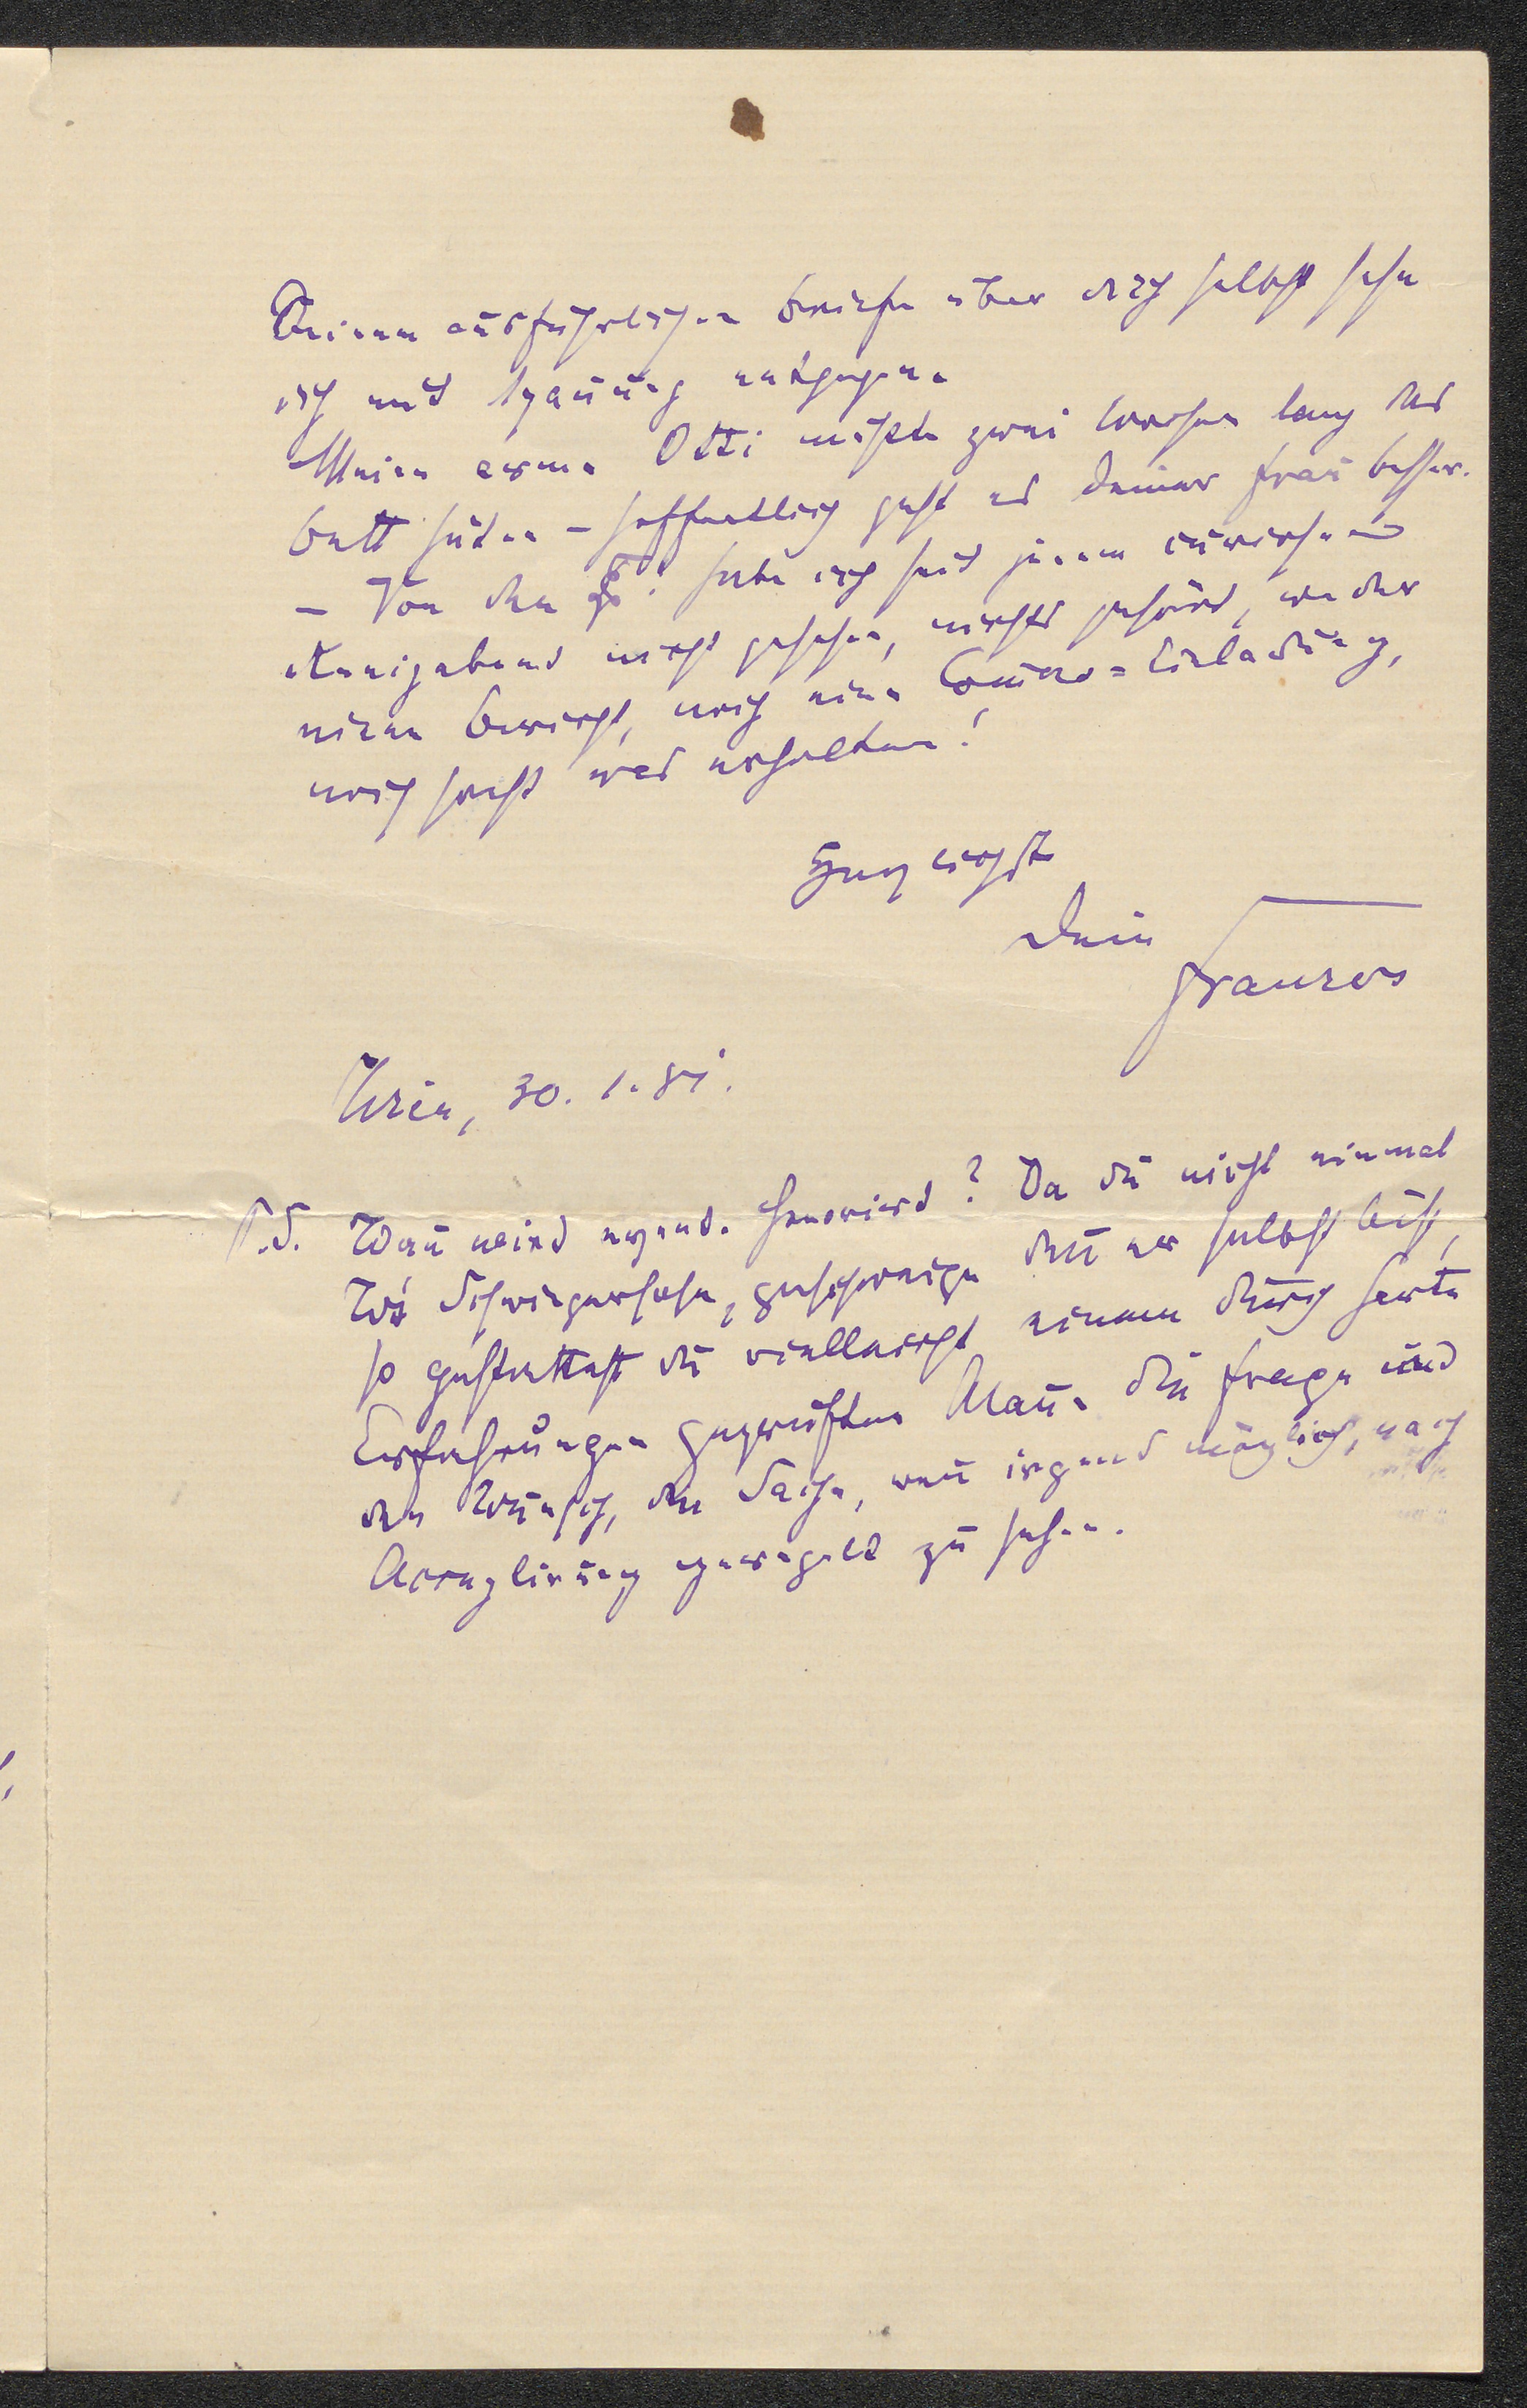 Deinem ausführlichen Briefe über dich selbst sehe
ich mit Spannung entgegen.
Meine arme Otti mußte zwei Wochen lang das
Bett hüten – hoffentlich geht es Deiner Frau besser.
– Von den habe ich seit jenem
Kneipabend nichts gesehen, nichts gehört, weder
einen Bericht, noch eine Comité-Einladung,
noch sonst was erhalten!
Herzlichst
Dein
Franzos
Wien, 30. 1. 81.
P.S. Wann wird honorirt? Da du nicht einmal
Schwiegersohn, geschweige denn er selbst bist,
so gestattest du vielleicht einem durch harte
Erfahrungen geprüften Manne die Frage und
den Wunsch, die Sache, wenn irgend möglich, nach
geregelt zu sehen.